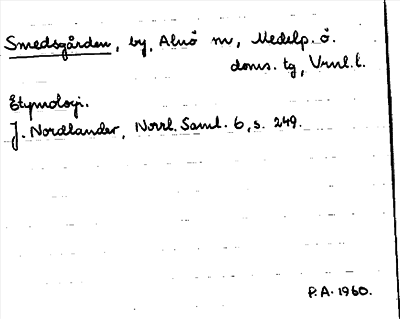 Smedsgården, by, Alnö m, Medelp. ö.
doms. tg, Vrnl. l.
Etymologi.
J. Nordlander, Norrl. Saml. 6, s. 249.
P.A. 1960.